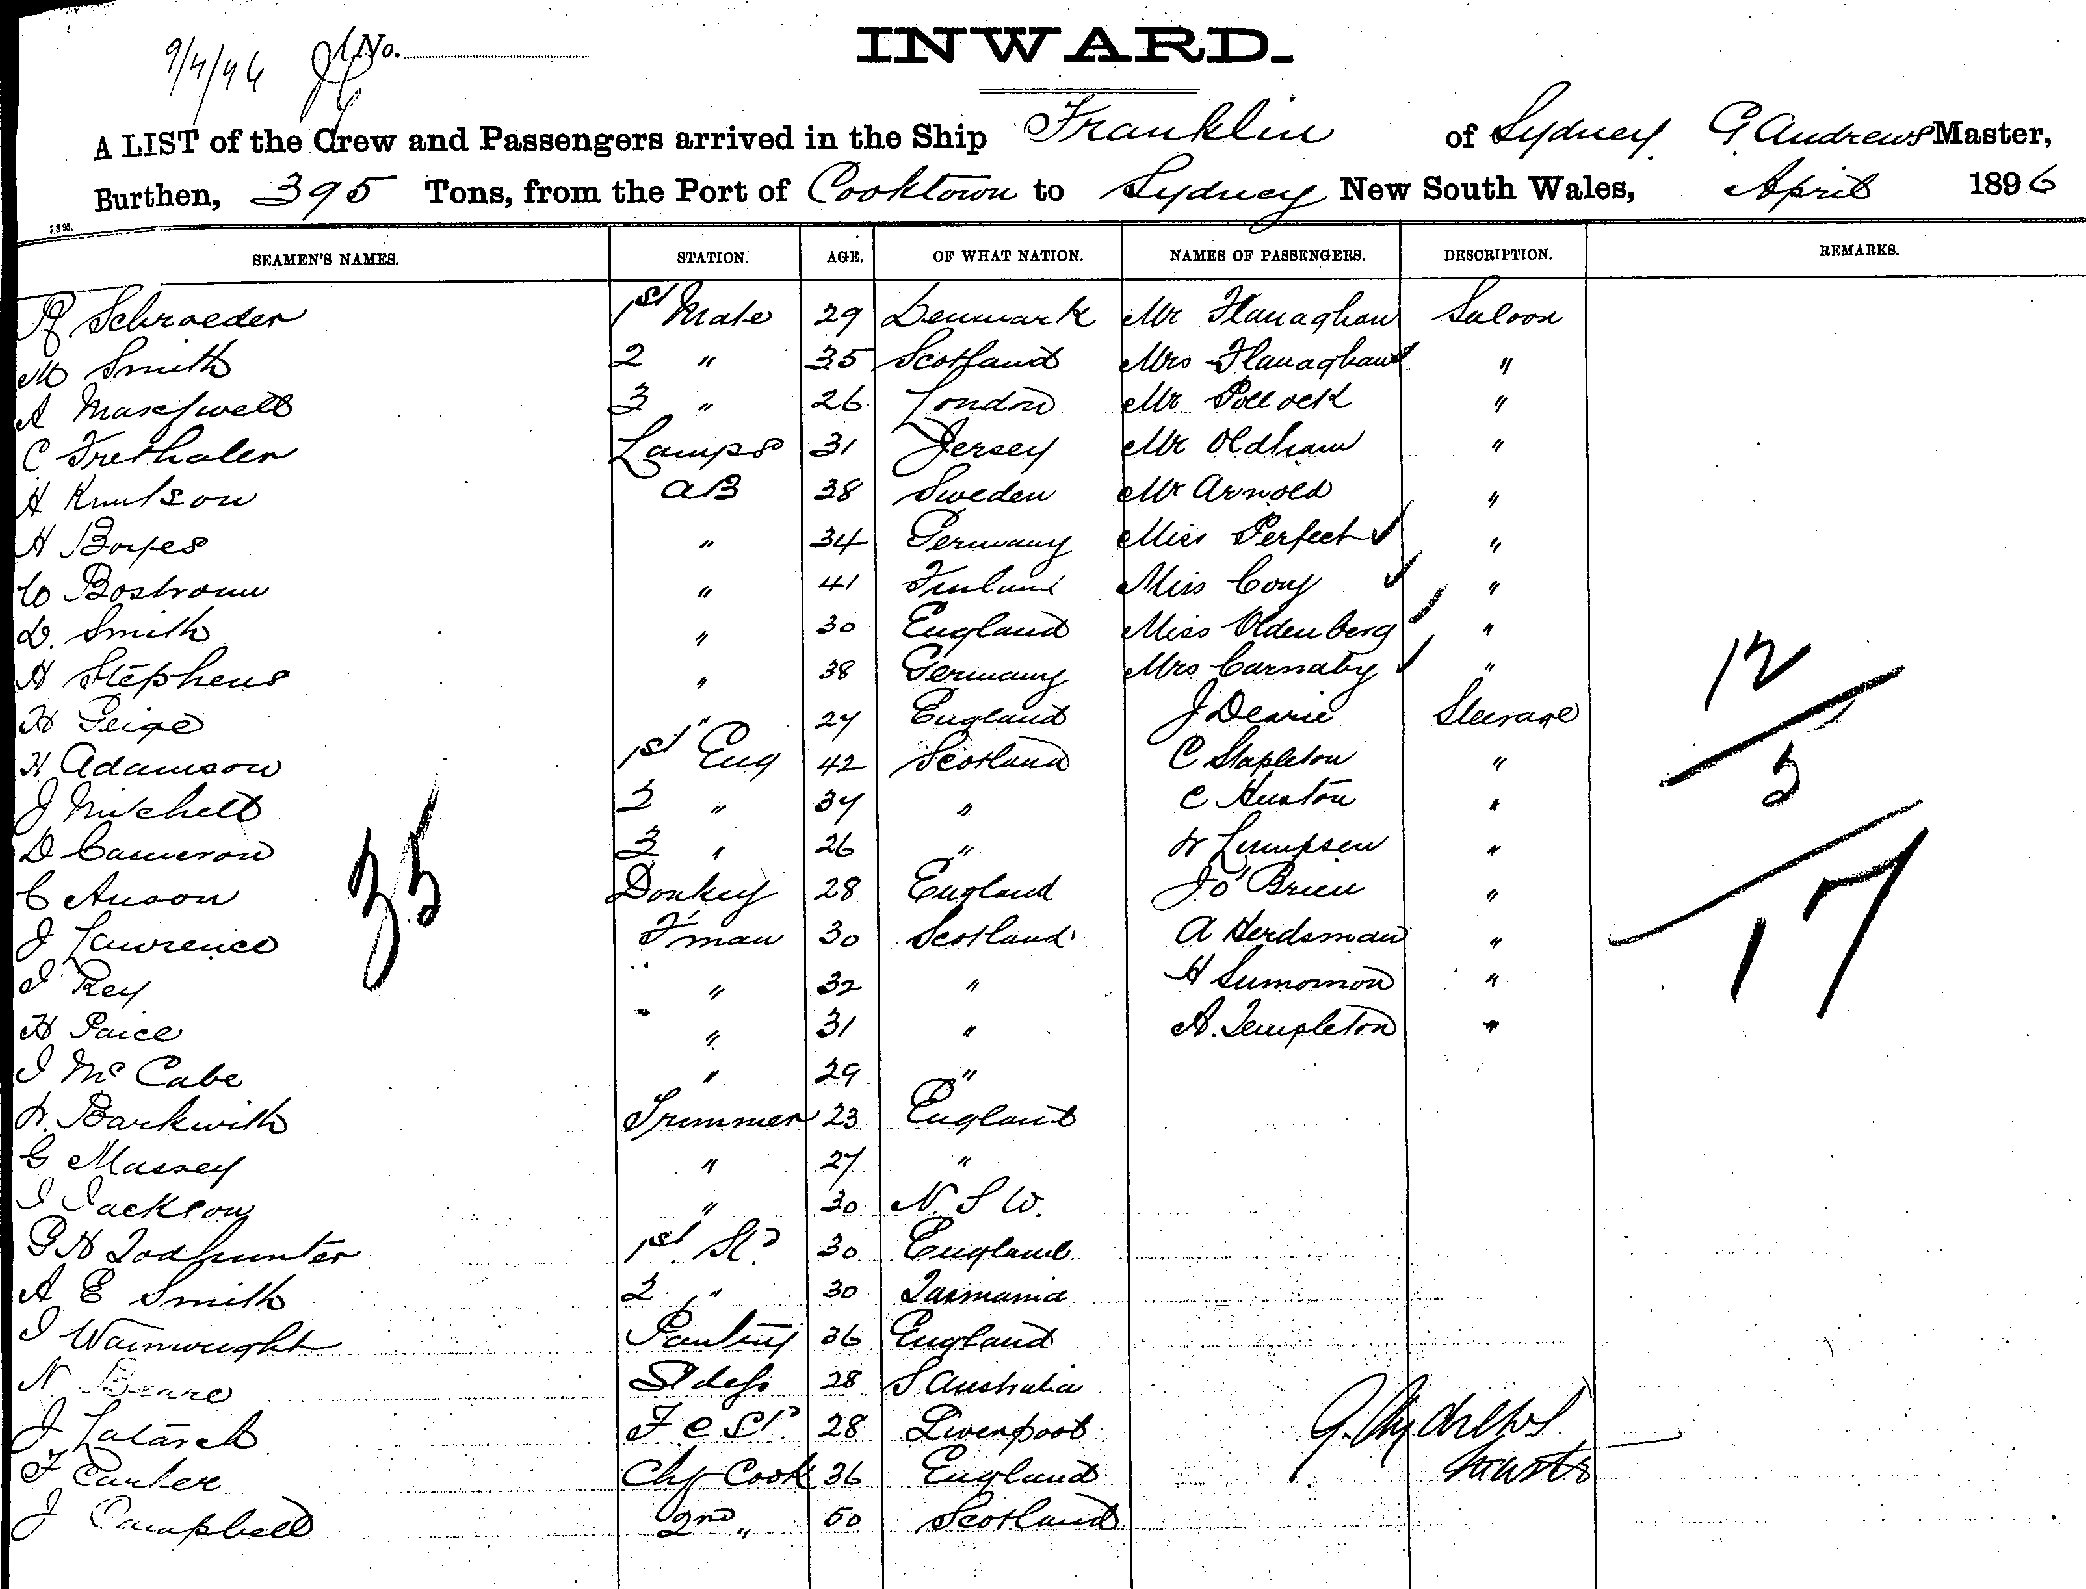 9/4/96 No.
INWARD.
A LIST of the Crew and Passengers arrived in the Ship Franklin of Sydney G. Andrews Master,
Burthen, 395 Tons, from the Port of Cooktown to Sydney New South Wales, April 1896
SEAMEN'S NAMES. STATION. AGE. OF WHAT NATION. NAMES OF PASSENGERS. DESCRIPTION. REMARKS.
Schroeder 1st Mate 29 Denmark Mr Flanaghan Saloon
M Smith 2 " 35 Scotland Mrs Flanaghan "
A Maxwell 3 " 26 London Mr Pollock "
C Frethaler Lamps 31 Jersey Mr Oldham "
H Knutson AB 38 Sweden Mr Arnold "
H Boyes " 34 Germany Miss Perfect "
Bostrom " 41 Finland Miss Cory "
D. Smith " 30 England Miss Oldenberg "
H Stephens " 38 Germany Mrs Carnaby "
H " 27 England J Dearie Steerage
H Adamson 1st Eng 42 Scotland C Stapleton "
J Mitchell 2 " 37 " C Huston "
D Cameron 3 " 26 " "
C Anson Donkey 28 England J O'Brien "
J Lawrence F'man 30 Scotland A Herdsman "
J Rey " 32 " H "
H Paice " 31 " A. Templeton "
J McCabe " 29 "
Barkwith Trimmer 23 England
G Massey " 27 "
J Jackson " 30 N. S W.
G H Todhunter 1st St. 30 England
A E Smith 2 " 30 Tasmania
J Wainwright Pantry 36 England
N Beare Stdess 28 S Australia
J F C St. 28 Liverpool
F Carter Chf Cook 36 England
J Campbell 2nd " 50 Scotland
35
12
5
17
G. Andrews
Master